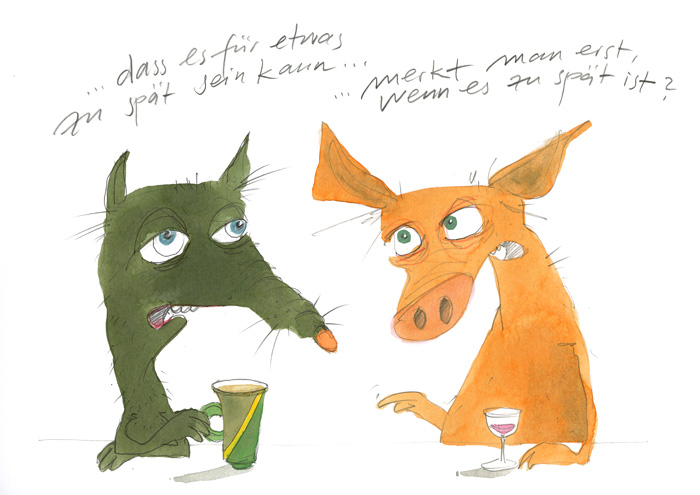 ... dass es für etwas
zu spät sein kann ...
... merkt man erst,
wenn es zu spät ist?